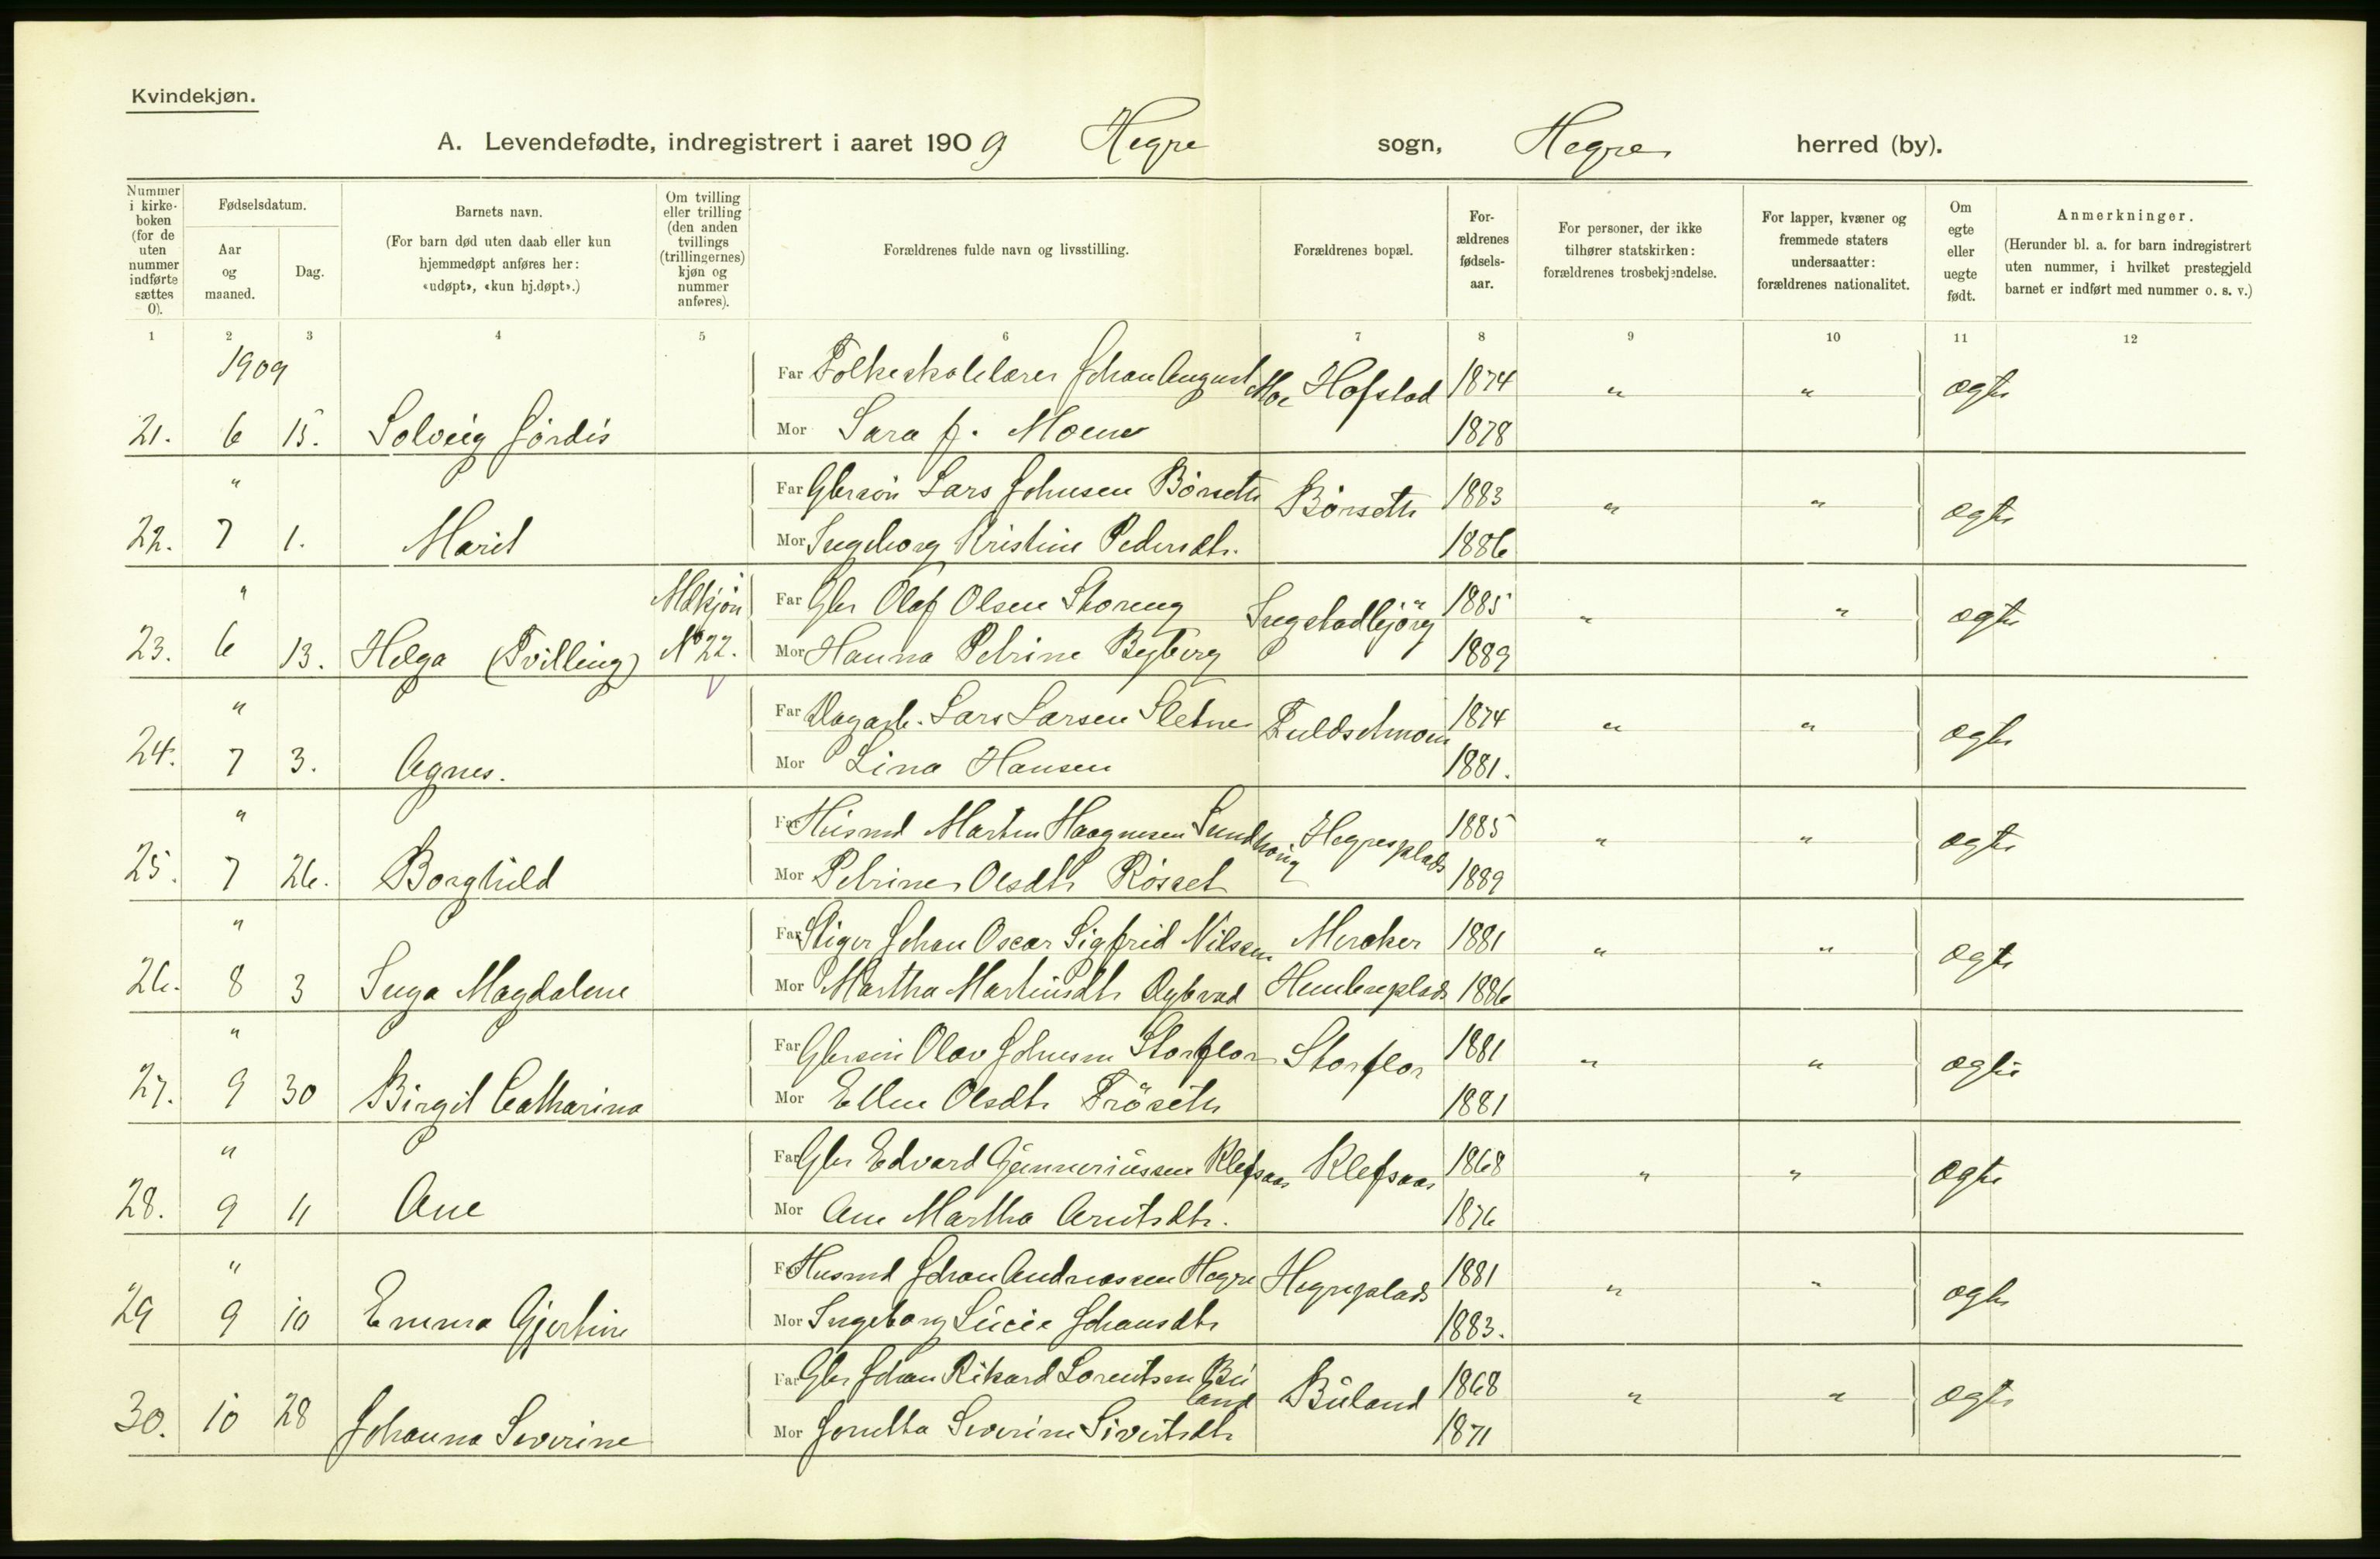 Kvindekjøn.
A. Levendefødte, indregistrert i aaret 1909 Hegre sogn, Hegre herred (by).
Nummer i kirke-boken (for de uten nummer indførte sættes 0).
Fødselsdatum.
Aar og maaned.
Dag.
Barnets navn.
(For barn død uten daab eller kun hjemmedøpt anføres her: «udøpt», «kun hj.døpt».)
Om tvilling eller trilling (den anden tvillings (trillingernes) kjøn og nummer anføres).
Forældrenes fulde navn og livsstilling.
Forældrenes bopæl.
For-ældrenes fødsels-aar.
For personer, der ikke tilhører statskirken: forældrenes trosbekjendelse.
For lapper, kvæner og fremmede staters undersaatter: forældrenes nationalitet.
Om egte eller uegte født.
Anmerkninger.
(Herunder bl. a. for barn indregistrert uten nummer, i hvilket prestegjeld barnet er indført med nummer o. s. v.)
1 2 3 4 5 6 7 8 9 10 11 12
1909 Far Folkeskolelærer Johan August Moe Hofstad 1874 " " ægte
21. 6 15. Solveig Jørdis Mor Sara f. Moene 1878
" Far Gbrsøn Lars Johnsen Børseth Børseth 1883 " " ægte
22. 7 1. Marit Mor Ingeborg Kristine Pedersdtr. 1886
" Mdkjøn Far Gbr Olaf Olsen Storeng Ingstadbjørg 1885 " " ægte
23. 6 13. Helga (Tvilling) No 22. Mor Hanna Petrine Bybergg 1889
" Far Dagarb. Lars Larsen Sletne Fuldsetmoen 1874 " " ægte
24. 7 3. Agnes. Mor Lina Hansen 1881.
" Far Husmd Martin Haagensen Sundhoug Hegresplads 1885 " " ægte
25. 7 26. Borghild Mor Petrine Olsdtr Røsset 1889
" Far Stiger Johan Oscar Sigfrid Nilssen Meraker 1881 " " ægte
26. 8 3 Inga Magdalene Mor Martha Martinsdtr 1886
" Far Gbrsøn Olav Johnsen Storflor Storflor 1881 " " ægte
27. 9 30 Birgit Catharina Mor Ellen Olsdtr Frøseth 1881
" Far Gbr Edvard Gunneriussen Klefsaas Klefsaas 1868 " " ægte
28. 9 11 Ane Mor Ane Martha Arntsdtr. 1876
" Far Husmd Johan Andreassen Hegre Hegreplads 1881 " " ægte
29 9 10 Emma Gjertine Mor Ingeborg Lucie Johansdtr 1883.
Far Gbr Johan Rikard Lorentsen Buland Buland 1868 " " ægte
30. 10 28 Johanna Severine Mor Jonetta Severine Sivertsdtr 1871